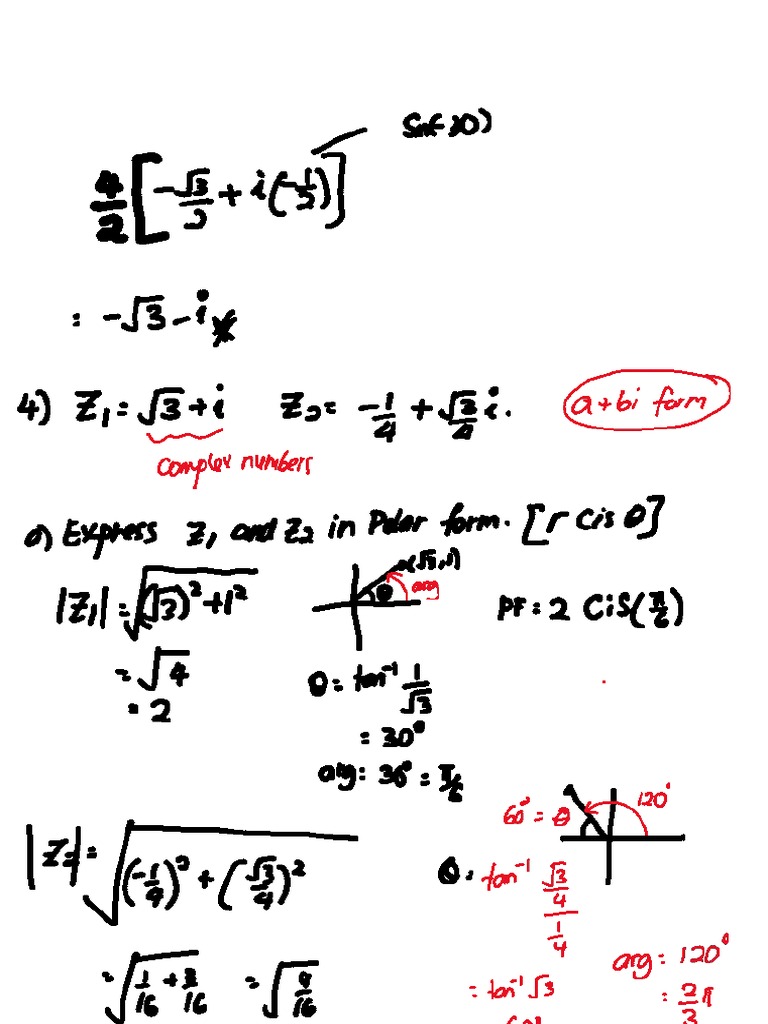 sin(-30)
4/2 [-√3/2 + i(-1/2)]
= -√3 - i
4) Z₁ = √3 + i Z₂ = -1/4 + √3/4 i. a+bi form
complex numbers
a) Express Z₁ and Z₂ in Polar form. [r cis θ]
|Z₁| = √((√3)² + 1²) (√3,1) θ arg PF = 2 Cis(π/6)
= √4 θ = tan⁻¹ 1/√3
= 2 = 30°
arg = 30° = π/6
60° = θ 120°
|Z₂| = √((-1/4)² + (√3/4)²) θ = tan⁻¹ (√3/4)/(1/4)
arg = 120°
= √(1/16 + 3/16) = √(4/16) = tan⁻¹ √3 = 2/3 π